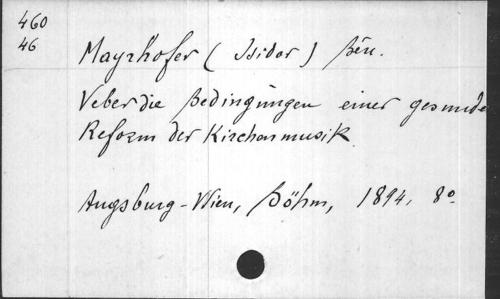 460
46
Mayrhofer (Isidor) Bén.
Ueber die Bedingungen einer gesunde
Reform der Kirchenmusik
Augsburg-Wien, Böhm, 1894, 8°